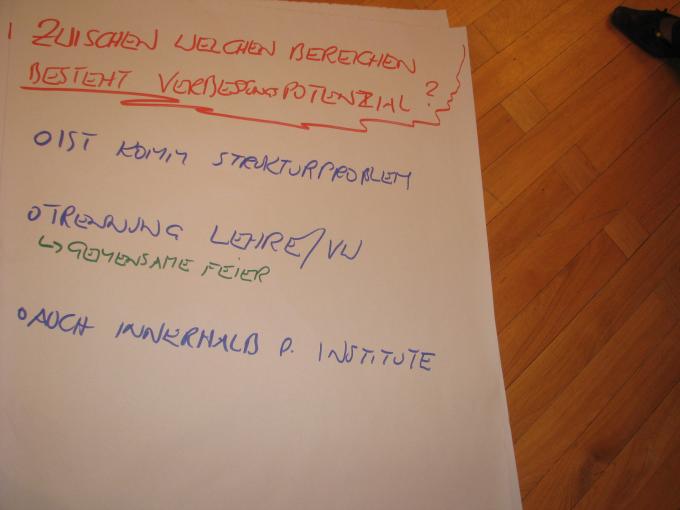 ZWISCHEN WELCHEN BEREICHEN
BESTEHT VERBESSUNGSPOTENZIAL?
o IST KOMM STRUKTURPROBLEM
o TRENNUNG LEHRE/VW
↳ GEMENSAME FEIER
o AUCH INNERHALB D. INSTITUTE